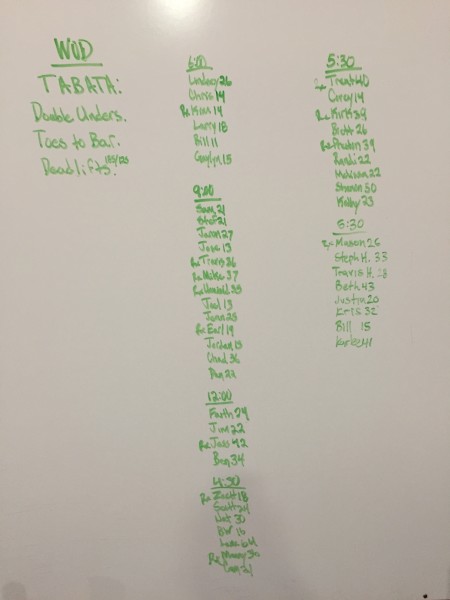 WOD
TABATA:
Double Unders.
Toes to Bar.
Deadlifts.
6:00
Lindsey 26
Chris 14
Rx Kim 14
Larry 18
Bill 11
15
9:00
21
21
Jason 27
Jose 13
Rx Travis 36
Rx Mike 37
Rx
Joel 13
Jenn 25
Rx Earl 19
Jordan 13
Chad 36
Dan 22
12:00
Faith 29
Jim 22
Rx Jess 42
Ben 34
4:30
Rx Zach 18
Scott
Nat 30
16
Rx
5:30
Rx Trent 40
Corey 14
Rx Kirk 39
Brett 26
Rx 39
Randi 22
Madison 22
Shannon 30
Kolby 23
6:30
Rx Mason 26
Steph H. 33
Travis H. 28
Beth 43
Justin 20
Kris 32
Bill 15
Karlee 41